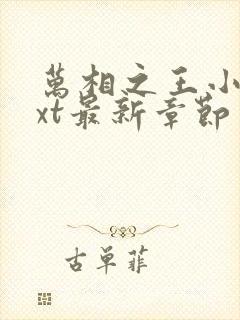 萬相之王小
xt最新章節
古單菲